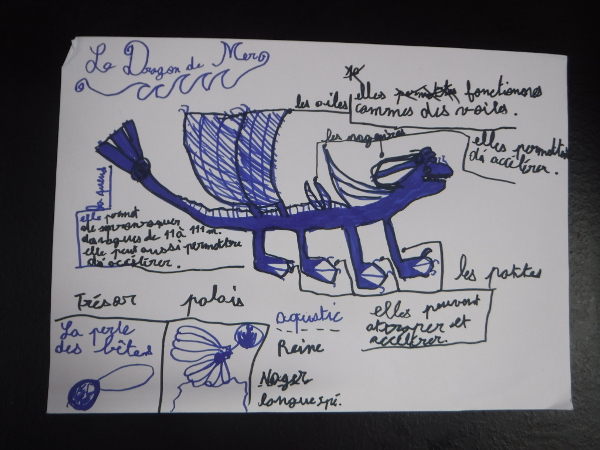 Le Dragon de Mer
les ailes
elles permettre fonctionons
commes des voiles.
les nageoires
elles permettre
d'accélérer.
la queue
elle permet
de
de vagues de 11 à 111 m.
elle peux aussi permettre
d'accélérer.
les pattes
elles peuvent
attraper et
accélérer.
Trésor
palais
La perle
des bêtes
aquatic
Reine
Nager
longue épé.